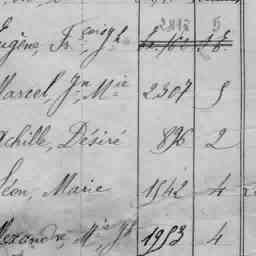 2812 5
Eugène, Fr.çois Jh
Marcel, Jn Mie 2307 5
Achille, Désiré 896 2
Léon, Marie 1542 4
Alexandre, Mie Jh 1953 4